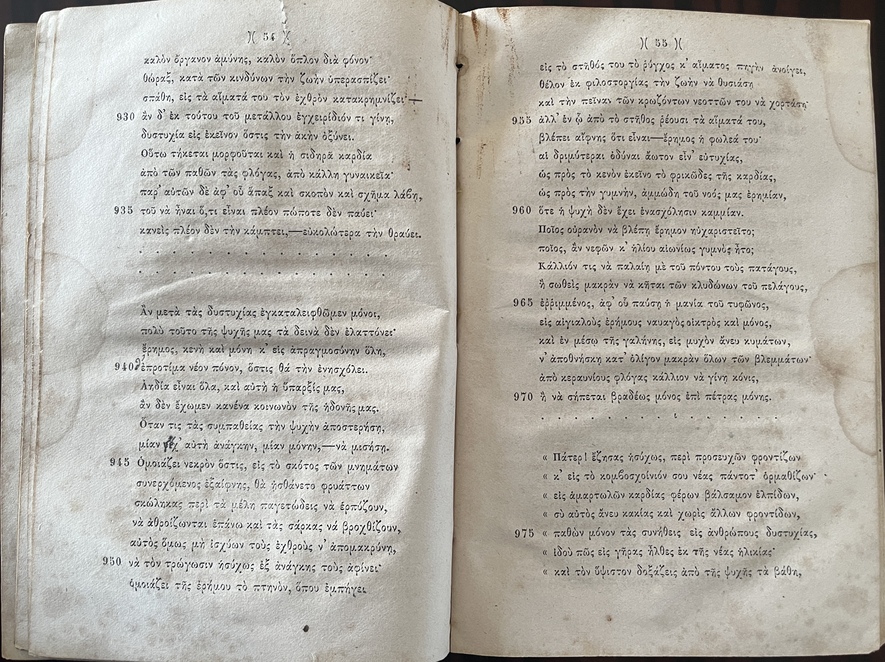 )( 54 )(
καλὸν ὄργανον ἀμύνης, καλὸν ὅπλον διὰ φόνον·
θώραξ, κατὰ τῶν κινδύνων τὴν ζωὴν ὑπερασπίζει·
σπάθη, εἰς τὰ αἵματά του τὸν ἐχθρὸν κατακρημνίζει·—
930 ἂν δ' ἐκ τούτου τοῦ μετάλλου ἐγχειρίδιόν τι γίνῃ,
δυστυχία εἰς ἐκεῖνον ὅστις τὴν ἀκὴν ὀξύνει.
Οὕτω τήκεται μορφοῦται καὶ ἡ σιδηρᾶ καρδία
ἀπὸ τῶν παθῶν τὰς φλόγας, ἀπὸ κάλλη γυναικεῖα·
παρ' αὐτῶν δὲ ἀφ' οὗ ἅπαξ καὶ σκοπὸν καὶ σχῆμα λάβῃ,
935 τοῦ νὰ ἦναι ὅ,τι εἶναι πλέον πώποτε δὲν παύει·
κανεὶς πλέον δὲν τὴν κάμπτει,—εὐκολώτερα τὴν θραύει.
. . . . . . . . . . . . . . .
. . . . . . . . . . . . . . .
Ἂν μετὰ τὰς δυστυχίας ἐγκαταλειφθῶμεν μόνοι,
πολὺ τοῦτο τῆς ψυχῆς μας τὰ δεινὰ δὲν ἐλαττόνει·
ἔρημος, κενὴ καὶ μόνη κ' εἰς ἀπραγμοσύνην ὅλη,
940 ἐπροτίμα νέον πόνον, ὅστις θά τὴν ἐνησχόλει.
Ἀηδία εἶναι ὅλα, καὶ αὐτὴ ἡ ὕπαρξίς μας,
ἂν δὲν ἔχωμεν κανένα κοινωνὸν τῆς ἡδονῆς μας.
Ὅταν τις τὰς συμπαθείας τὴν ψυχὴν ἀποστερήσῃ,
μίαν ἔχ' αὐτὴ ἀνάγκην, μίαν μόνην,—νὰ μισήσῃ.
945 Ὁμοιάζει νεκρὸν ὅστις, εἰς τὸ σκότος τῶν μνημάτων
συνερχόμενος ἐξαίφνης, θὰ ᾐσθάνετο φρυάττων
σκώληκας περὶ τὰ μέλη παγετώδεις νὰ ἑρπύζουν,
νὰ ἀθροίζωνται ἐπάνω καὶ τὰς σάρκας νὰ βροχθίζουν,
αὐτὸς ὅμως μὴ ἰσχύων τοὺς ἐχθροὺς ν' ἀπομακρύνῃ,
950 νὰ τὸν τρώγωσιν ἡσύχως ἐξ ἀνάγκης τοὺς ἀφίνει·
ὁμοιάζει τῆς ἐρήμου τὸ πτηνὸν, ὅπου ἐμπήγει
)( 55 )(
εἰς τὸ στῆθός του τὸ ῥύγχος κ' αἵματος πηγὴν ἀνοίγει,
θέλον ἐκ φιλοστοργίας τὴν ζωὴν νὰ θυσιάσῃ
καὶ τὴν πεῖναν τῶν κρωζόντων νεοττῶν του νὰ χορτάσῃ·
955 ἀλλ' ἐν ᾧ ἀπὸ τὸ στῆθος ῥέουσι τὰ αἵματά του,
βλέπει αἴφνης ὅτι εἶναι—ἔρημος ἡ φωλεά του·
αἱ δριμύτεραι ὀδύναι ἄωτον εἶν' εὐτυχίας,
ὡς πρὸς τὸ κενὸν ἐκεῖνο τὸ φρικῶδες τῆς καρδίας,
ὡς πρὸς τὴν γυμνὴν, ἀμμώδη τοῦ νοός μας ἐρημίαν,
960 ὅτε ἡ ψυχὴ δὲν ἔχει ἐνασχόλησιν καμμίαν.
Ποῖος οὐρανὸν νὰ βλέπῃ ἔρημον ηὐχαριστεῖτο;
ποῖος, ἂν νεφῶν κ' ἡλίου αἰωνίως γυμνὸς ἦτο;
Κάλλιόν τις νὰ παλαίῃ μὲ τοῦ πόντου τοὺς πατάγους,
ἢ σωθεὶς μακρὰν νὰ κῆται τῶν κλυδώνων τοῦ πελάγους,
965 ἐῤῥιμμένος, ἀφ' οὗ παύσῃ ἡ μανία τοῦ τυφῶνος,
εἰς αἰγιαλοὺς ἐρήμους ναυαγὸς οἰκτρὸς καὶ μόνος,
καὶ ἐν μέσῳ τῆς γαλήνης, εἰς μυχὸν ἄνευ κυμάτων,
ν' ἀποθνήσκῃ κατ' ὀλίγον μακρὰν ὅλων τῶν βλεμμάτων·
ἀπὸ κεραυνίους φλόγας κάλλιον νὰ γίνῃ κόνις,
970 ἢ νὰ σήπεται βραδέως μόνος ἐπὶ πέτρας μόνης.
. . . . . . . . . . . . . . .
« Πάτερ! ἔζησας ἡσύχως, περὶ προσευχῶν φροντίζων
« κ' εἰς τὸ κομβοσχοίνιόν σου νέας πάντοτ' ὁρμαθίζων·
« εἰς ἁμαρτωλῶν καρδίας φέρων βάλσαμον ἐλπίδων,
« σὺ αὐτὸς ἄνευ κακίας καὶ χωρὶς ἄλλων φροντίδων,
975 « παθὼν μόνον τὰς συνήθεις εἰς ἀνθρώπους δυστυχίας,
« ἰδοὺ πῶς εἰς γῆρας ἦλθες ἐκ τῆς νέας ἡλικίας·
« καὶ τὸν ὕψιστον δοξάζεις ἀπὸ τῆς ψυχῆς τὰ βάθη,